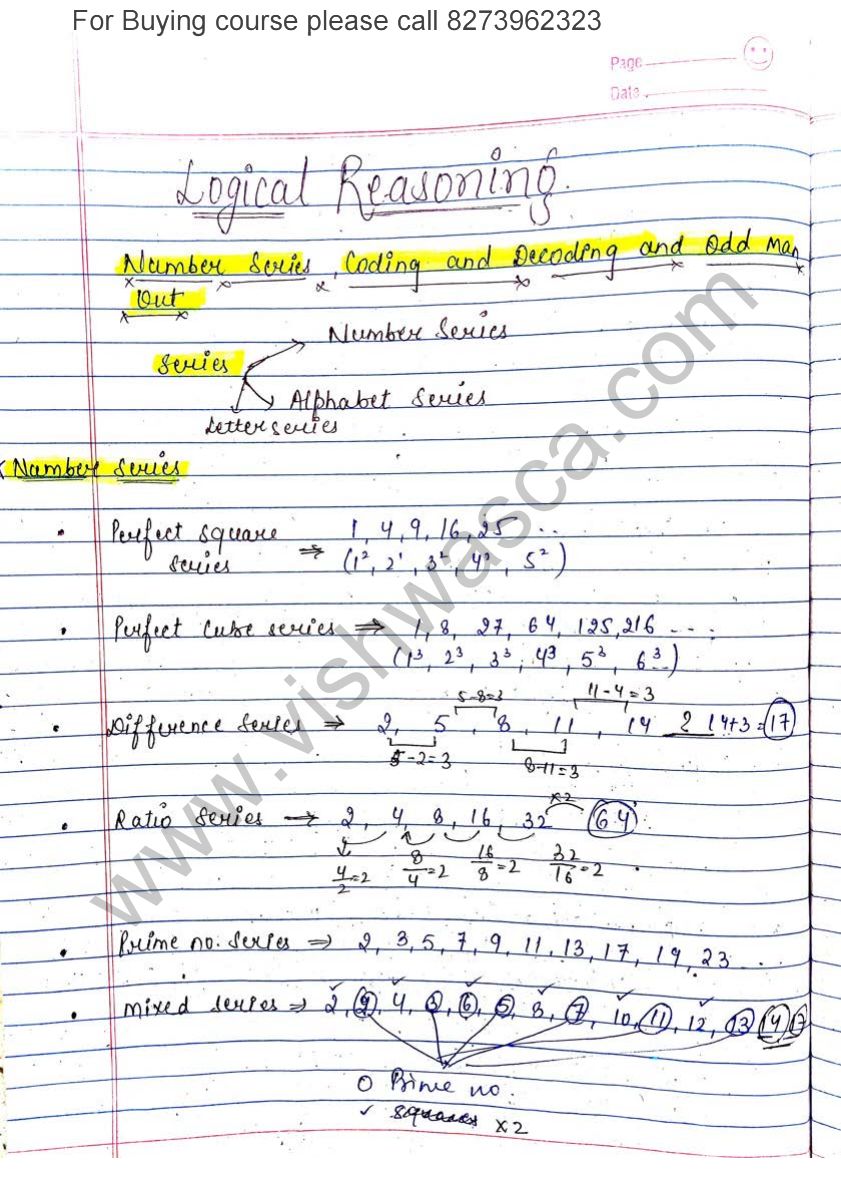 For Buying course please call 8273962323
Page
Date
Logical Reasoning.
Number Series, Coding and Decoding and Odd Man
Out
Number Series
Series
Alphabet Series
Letterseries
Number Series
Perfect square ⇒ 1, 4, 9, 16, 25 ..
series (1², 2¹, 3², 4², 5²)
Perfect Cube series ⇒ 1, 8, 27, 64, 125, 216 ----
(1³, 2³, 3³, 4³, 5³, 6³..)
5-8=3 11-4=3
Difference Series ⇒ 2, 5, 8, 11, 14 2 14+3=17
5-2=3 8-11=3
×2
Ratio Series → 2, 4, 8, 16, 32 64
4/2=2 8/4=2 16/8=2 32/16=2
Prime no. Series ⇒ 2, 3, 5, 7, 9, 11, 13, 17, 19, 23 ...
Mixed series ⇒ 2, 2, 4, 3, 6, 5, 8, 7, 10, 11, 12, 13 14 17
O Prime no.
✓ squares ×2
www.vishwasca.com